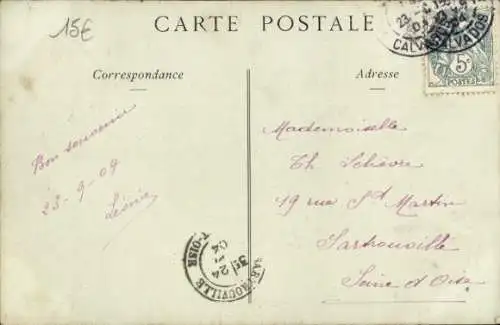 15€
CARTE POSTALE
CALVADOS
5c
Correspondance
Adresse
Bon souvenir
23-9-09
Léonie
Mademoiselle
Th. Lelièvre
19 rue St Martin
Sartrouville
Seine et Oise
SARTROUVILLE
24